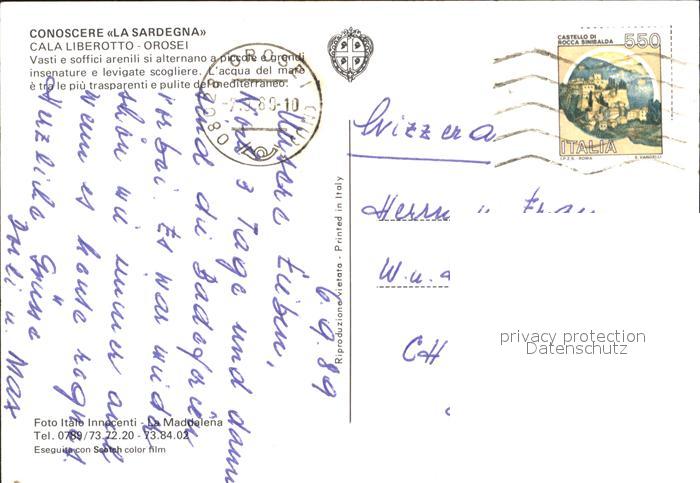 CONOSCERE «LA SARDEGNA»
CALA LIBEROTTO - OROSEI
Vasti e soffici arenili si alternano a piccole e grandi
insenature e levigate scogliere. L'acqua del mare
è tra le più trasparenti e pulite del mediterraneo.
CASTELLO DI
ROCCA SINIBALDA
550
ITALIA
I.P.Z.S. ROMA
08028 OROSEI (NU)
6.9.89
Liebe
Noch 3 Tage und dann
sind die Badeferien
vorbei. Es war wieder
schön wie immer auch
wenn es heute regnet.
Herzliche Grüsse
u. Max
Riproduzione vietata - Printed in Italy
Svizzera
Herrn u. Frau
W. u.
CH
privacy protection
Datenschutz
Foto Italo Innocenti - La Maddalena
Tel. 0789/73.72.20 - 73.84.02
Eseguita con Scotch color film